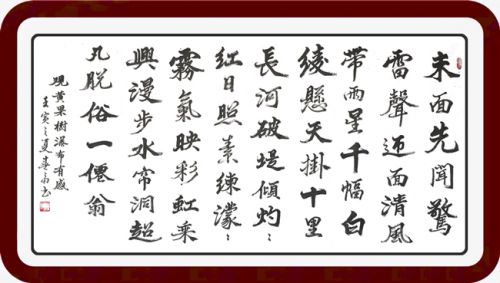 未面先聞驚
雷聲迎面清風
帶雨星千幅白
綾懸天掛十里
長河破堤傾灼〻
紅日照素練濛〻
霧氣映彩虹乘
興漫步水帘洞超
凡脱俗一僊翁
觀黄果樹瀑布有感
壬寅之夏書